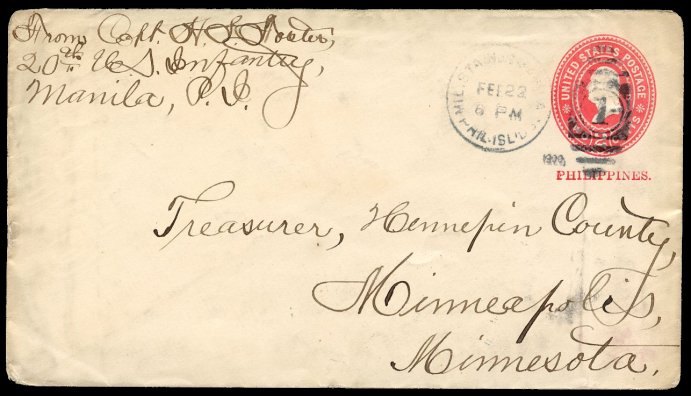 From Capt. H. S. Foster,
20th U.S. Infantry,
Manila, P. I.
MIL. STA. NO. 1 MANILA
FEB 22
6 PM
PHIL. ISL'DS.
1900
UNITED STATES POSTAGE
1
PHILIPPINES.
Treasurer, Hennepin County,
Minneapolis,
Minnesota.